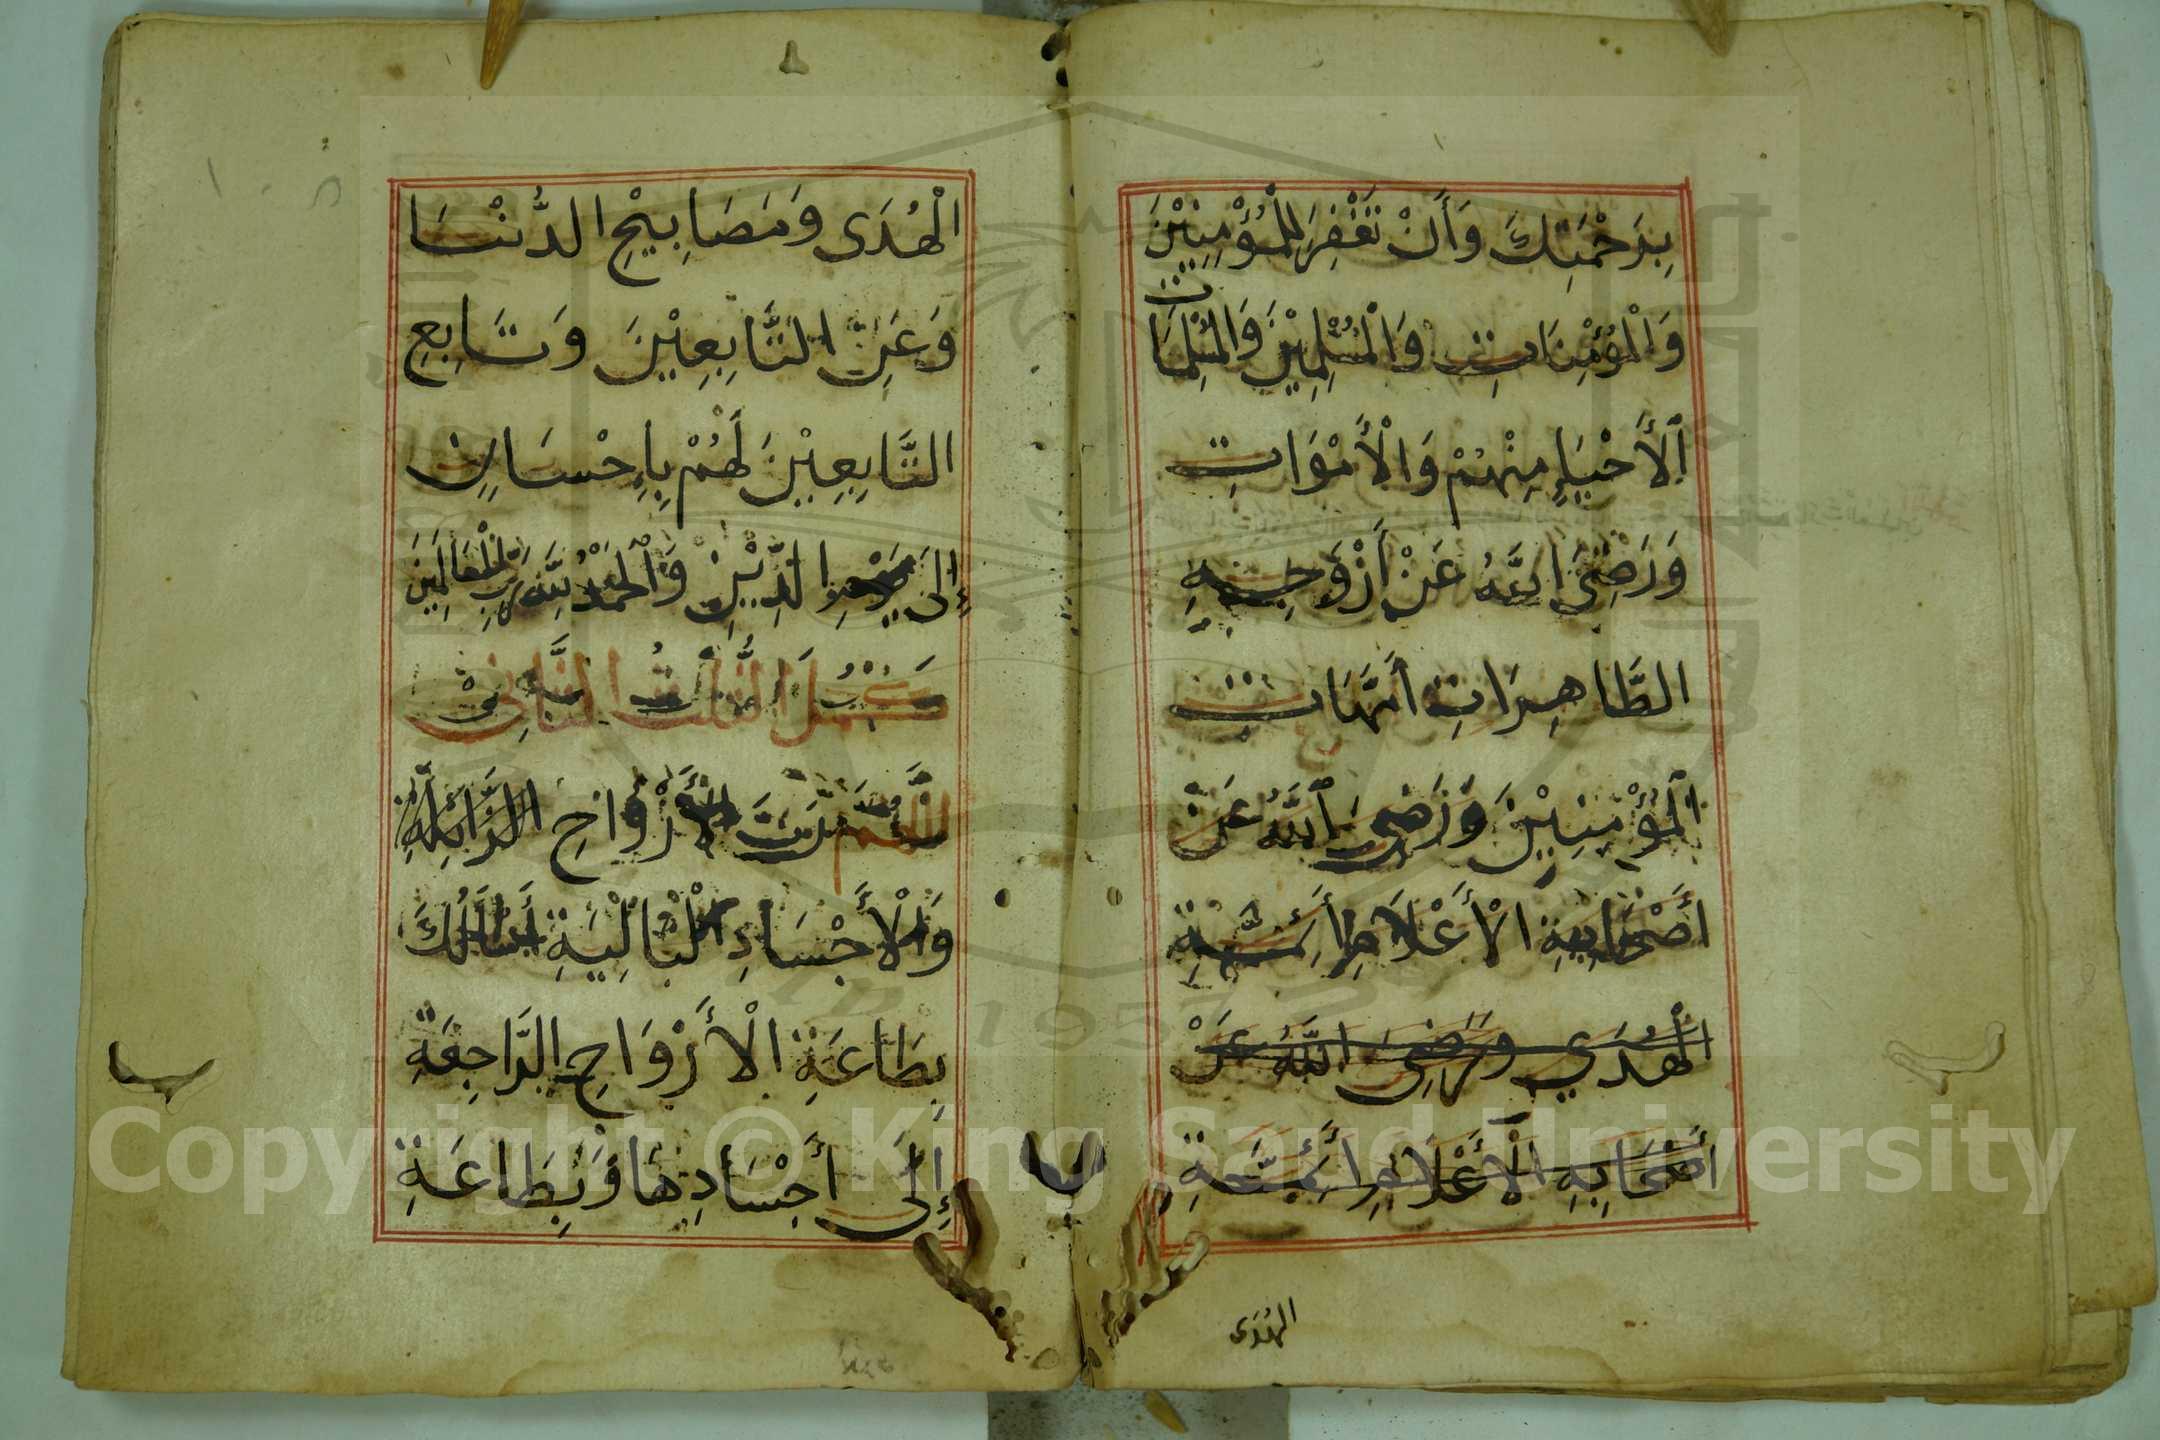 بِرَحْمَتِكَ وَأَنْ تَغْفِرَ لِلْمُؤْمِنِيْنَ
وَالْمُؤْمِنَاتِ وَالْمُسْلِمِيْنَ وَالْمُسْلِمَاتِ
اَلْأَحْيَاءِ مِنْهُمْ وَالْأَمْوَاتِ
وَرَضِيَ اللَّهُ عَنْ أَزْوَجِهِ
الطَّاهِرَاتِ أُمَّهَاتِ
اَلْمُؤْمِنِيْنَ وَرَضِيَ اَللَّهُ عَنْ
أَصْحَابِهِ الْأَعْلَامِ أَئِمَّةِ
الْهُدَي وَرَضِيَ اللَّهُ عَنْ
أَصْحَابِهِ الْأَعْلَامِ أَئِمَّةِ
الْهُدَى
الْهُدَى وَمَصَابِيْحِ الدُّنْيَا
وَعَنِ التَّابِعِيْنَ وَتَابِعِ
التَّابِعِيْنَ لَهُمْ بِإِحْسَانٍ
إِلَى يَوْمِ الدِّيْنِ وَالْحَمْدُ لِلَّهِ رَبِّ الْعَالَمِيْنَ
كَمُلَ الثُّلُثُ الثَّانِي
اَللَّهُمَّ رَبَّ الْأَرْوَاحِ
وَالْأَجْسَادِ الْبَالِيَةِ أَسْأَلُكَ
بِطَاعَةِ الْأَرْوَاحِ الرَّاجِعَةِ
إِلَى أَجْسَادِهَا وَبِطَاعَةِ
Copyright © King Saud University
1957